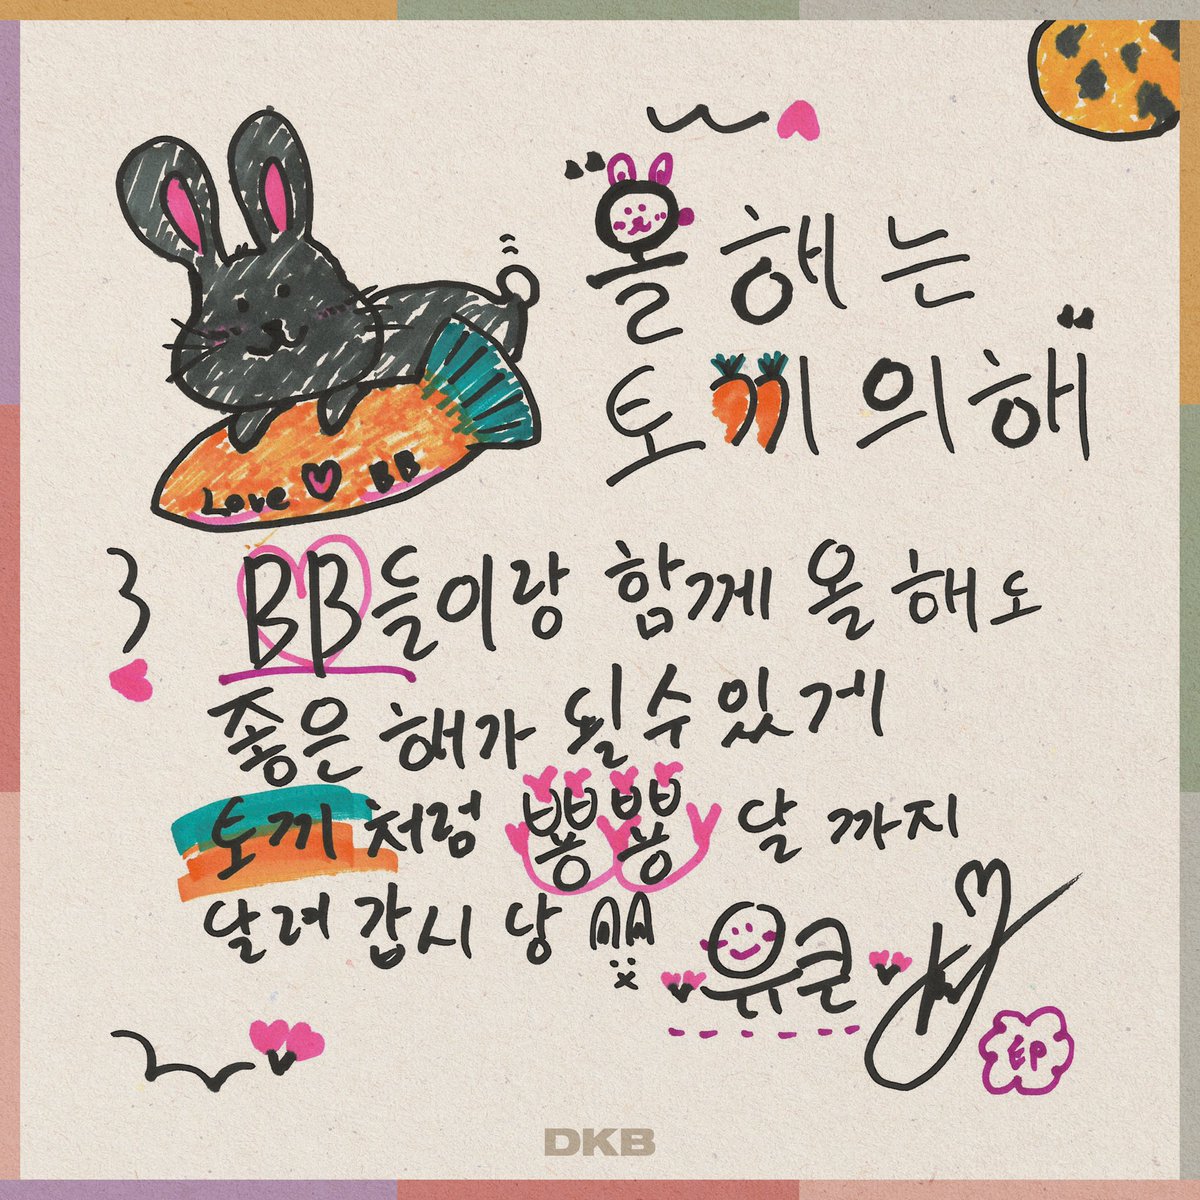 "올해는
토끼의해"
Love ♡ BB
BB들이랑 함께 올해도
좋은 해가 될 수 있게
토끼처럼 뿅뿅 달까지
달려갑시당
유큰
EP
DKB